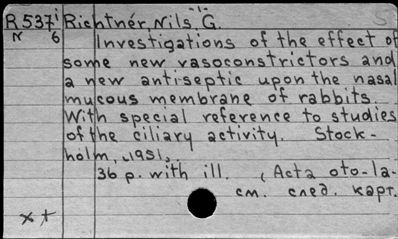 R537 Richtnér, Nils G.
N 6
Investigations of the effect of
some new vasoconstrictors and
a new antiseptic upon the nasal
mucous membrane of rabbits.
With special reference to studies
of the ciliary activity. Stock-
holm, 1951,
36 p. with ill. (Acta oto-la-
см. след. карт.
x +